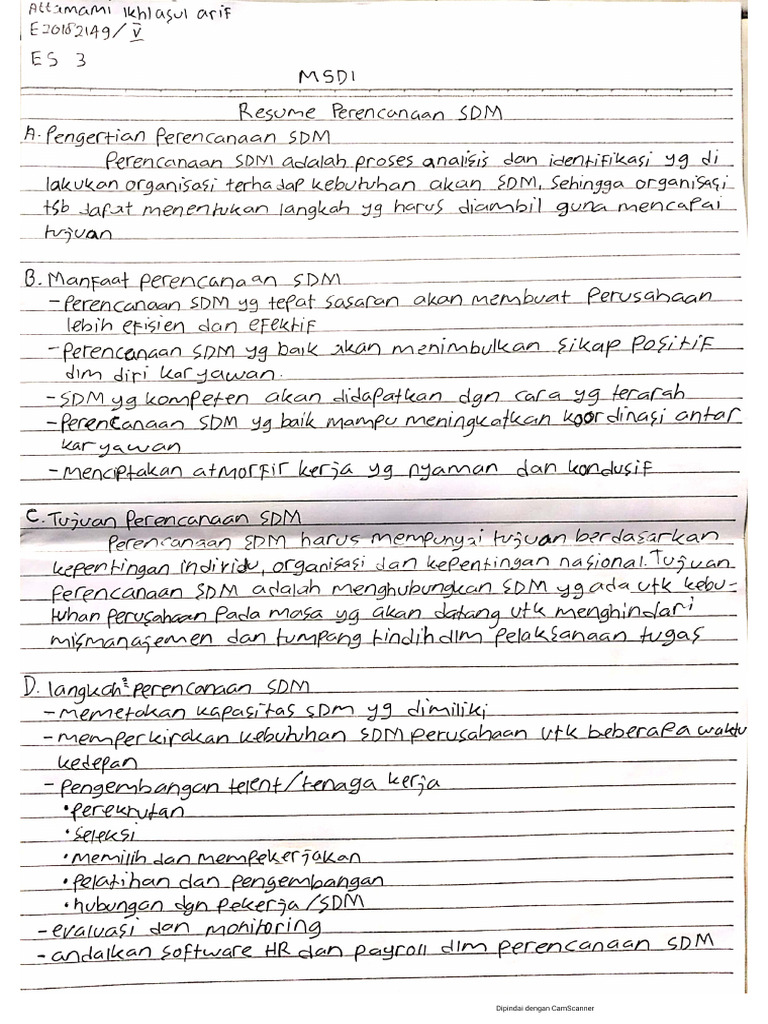 Attamami Ikhlasul arif
E20182149/V
ES 3
MSDI
Resume Perencanaan SDM
A. Pengertian Perencanaan SDM
Perencanaan SDM adalah proses analisis dan identifikasi yg di
lakukan organisasi terhadap kebutuhan akan SDM, sehingga organisasi
tsb dapat menentukan langkah yg harus diambil guna mencapai
tujuan
B. Manfaat perencanaan SDM
- Perencanaan SDM yg tepat sasaran akan membuat perusahaan
lebih efisien dan efektif
- perencanaan SDM yg baik akan menimbulkan sikap positif
dlm diri karyawan.
- SDM yg kompeten akan didapatkan dgn cara yg terarah
- perencanaan SDM yg baik mampu meningkatkan koordinasi antar
karyawan
- menciptakan atmorfir kerja yg nyaman dan kondusif
C. Tujuan Perencanaan SDM
Perencanaan SDM harus mempunyai tujuan berdasarkan
kepentingan individu, organisasi dan kepentingan nasional. Tujuan
perencanaan SDM adalah menghubungkan SDM yg ada utk kebu-
tuhan perusahaan pada masa yg akan datang utk menghindari
mismanajemen dan tumpang tindih dlm pelaksanaan tugas
D. langkah² perencanaan SDM
- memetakan kapasitas SDM yg dimiliki
- memperkirakan kebutuhan SDM perusahaan utk beberapa waktu
kedepan
- pengembangan telent/tenaga kerja
• perekrutan
• seleksi
• memilih dan mempekerjakan
• pelatihan dan pengembangan
• hubungan dgn pekerja/SDM
- evaluasi dan monitoring
- andalkan software HR dan payroll dlm perencanaan SDM
Dipindai dengan CamScanner